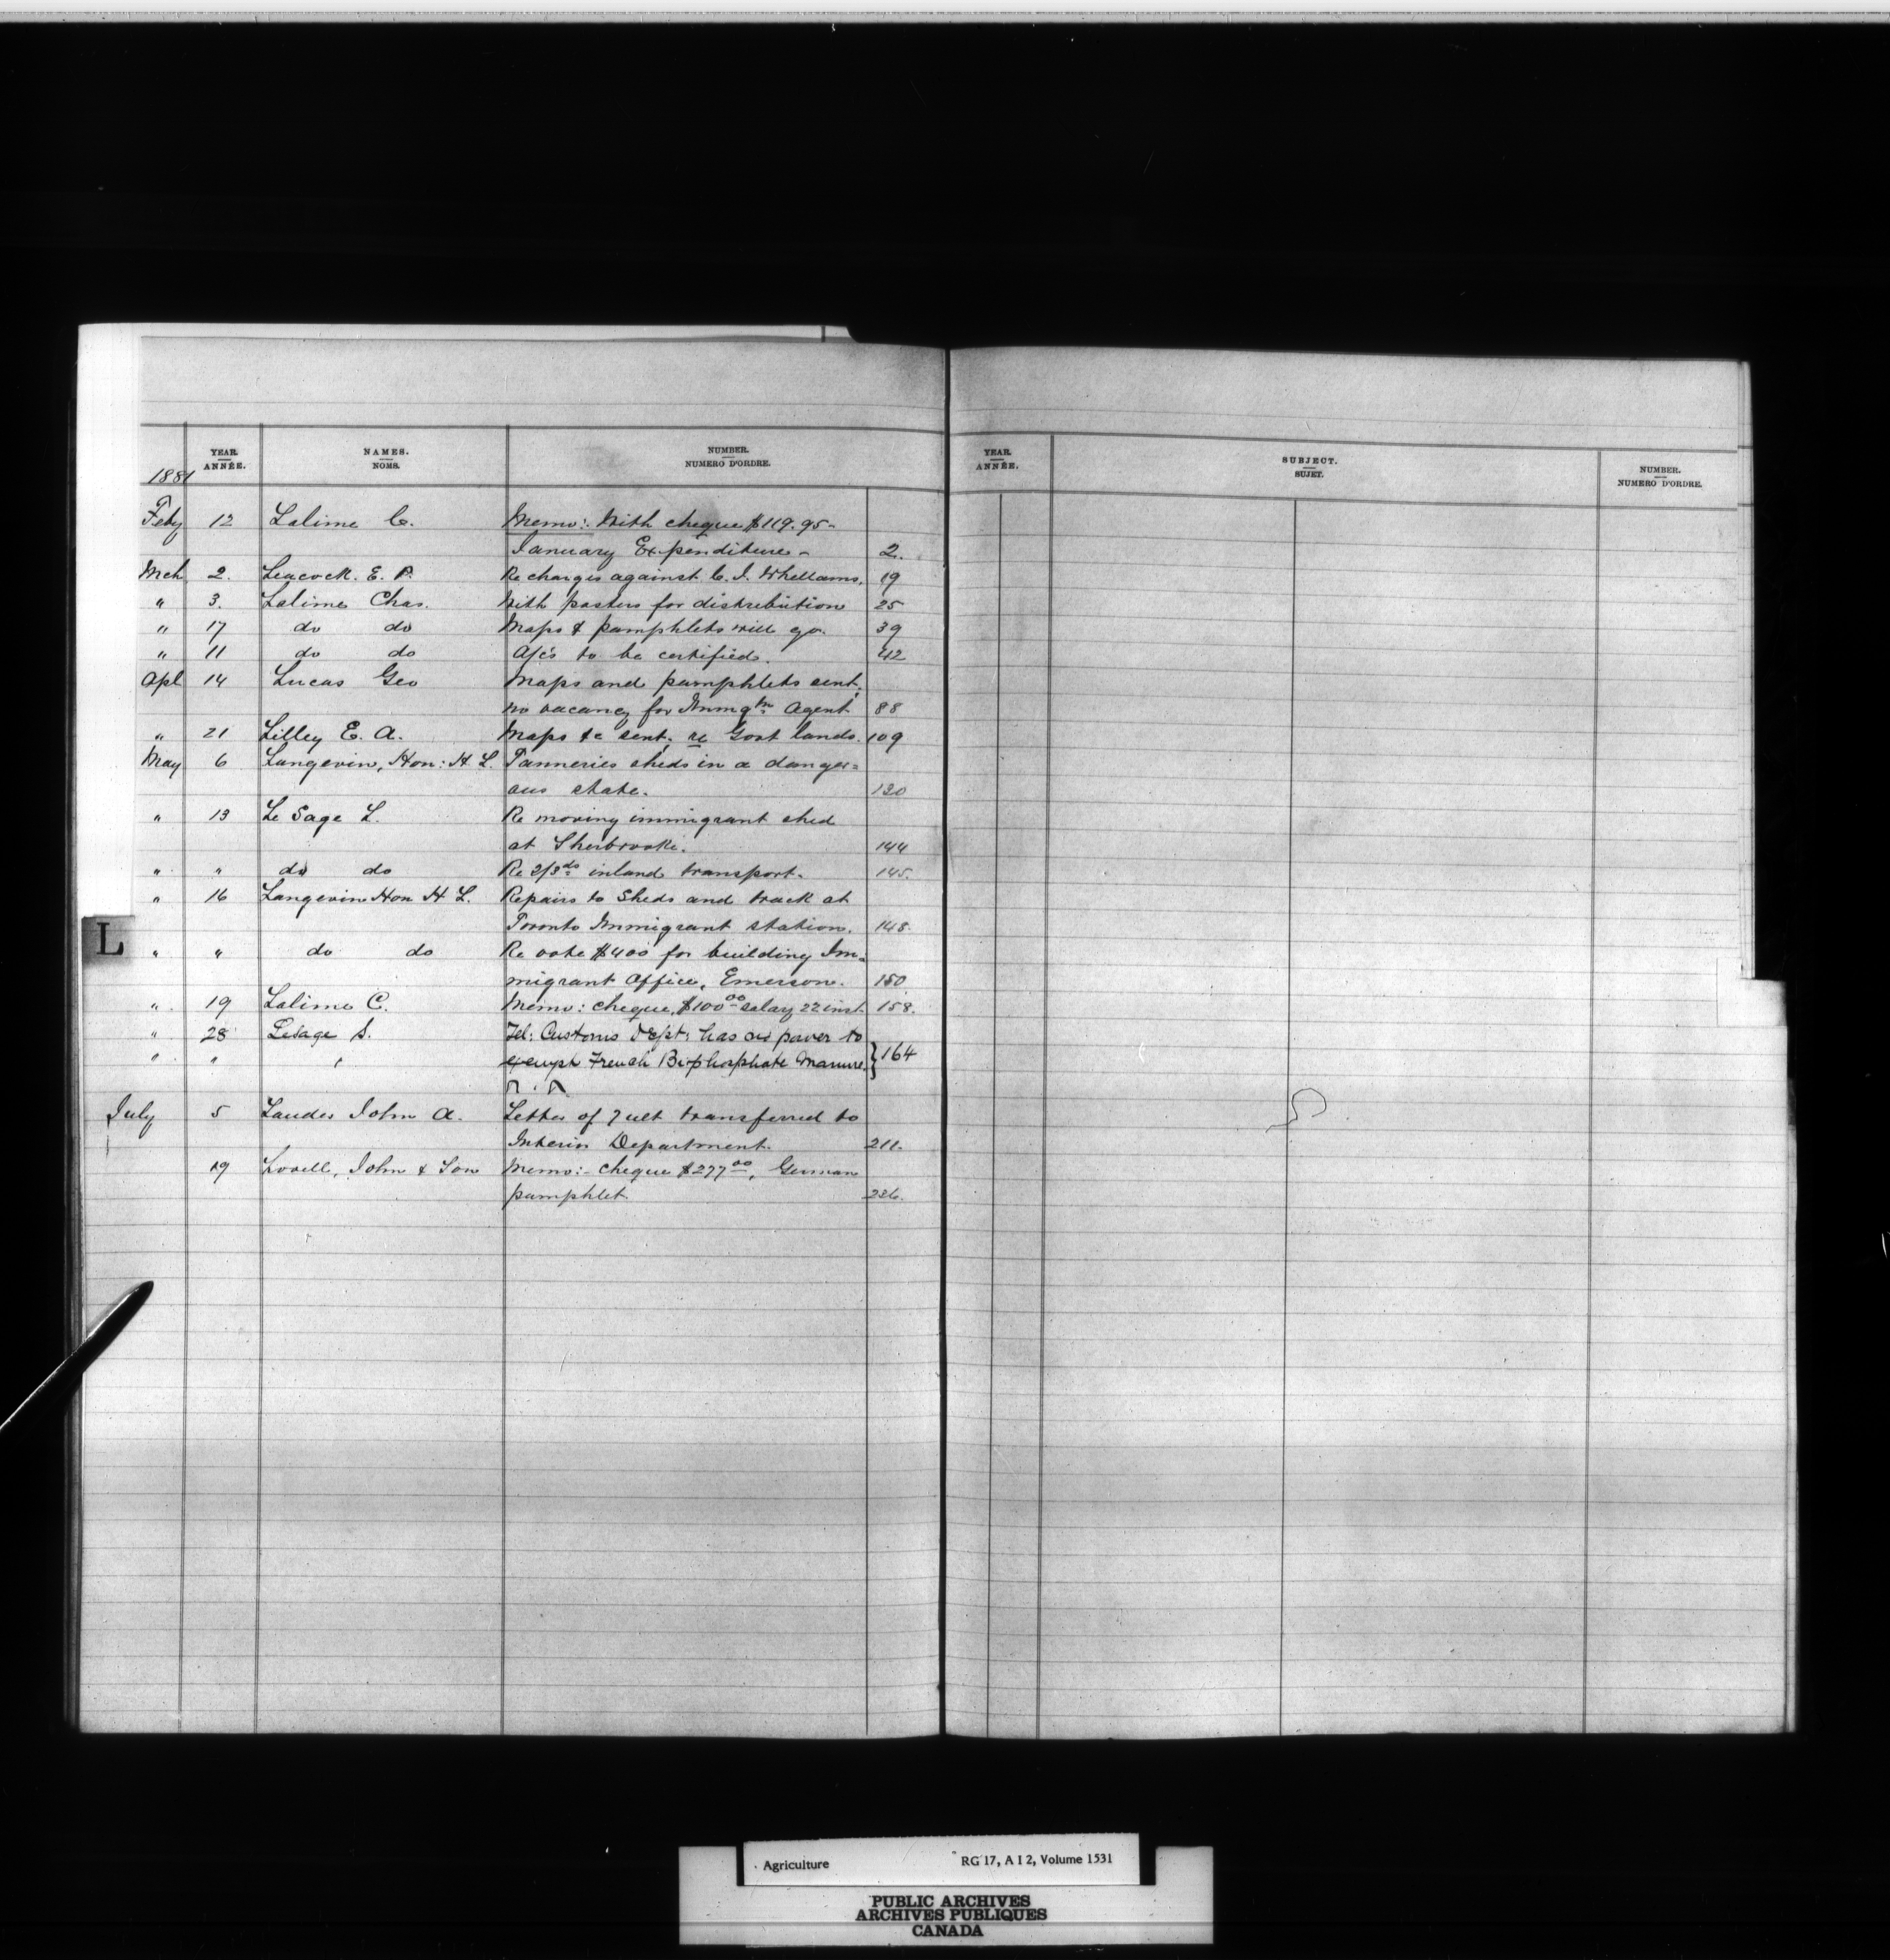 YEAR. NAMES. NUMBER.
1881 ANNÉE. NOMS. NUMERO D'ORDRE.
Feby 12 Lalime C. Memo: With cheque $119.95-
January Expenditure - 2.
Mch 2. Leacock. E. P. Re charges against C. I. Whellams. 19
" 3. Lalime Chas. With posters for distribution 25
" 17 do do Maps & pamphlets will go. 39
" 11 do do A/cs to be certified. 42
Apl 14 Lucas Geo Maps and pamphlets sent,
no vacancy for Immgtn Agent 88
" 21 Lilley E. A. Maps &c sent, re Govt lands. 109
May 6 Langevin, Hon: H. L. Tanneries sheds in a danger=
ous state. 130
" 13 Le Sage L. Re moving immigrant shed
at Sherbrooke. 144
" " do do Re 2/3ds inland transport. 145.
" 16 Langevin Hon H L. Repairs to Sheds and track at
Toronto Immigrant station. 148.
L
" " do do Re vote $400 for building Im=
migrant Office, Emerson. 150
" 19 Lalime C. Memo: cheque, $100 00 salary 22 inst. 158.
" 28 Lesage S. Tel: Customs Dept: has no power to
" " " exempt French Bi-phosphate Manure. } 164
July 5 Lauder John A. Letter of 7 ult transferred to
Interior Department. 211.
19 Lovell, John & Son Memo:- cheque $277 00, German
pamphlet. 236.
YEAR. SUBJECT. NUMBER.
ANNÉE. SUJET. NUMERO D'ORDRE.
Agriculture RG 17, A I 2, Volume 1531
PUBLIC ARCHIVES
ARCHIVES PUBLIQUES
CANADA